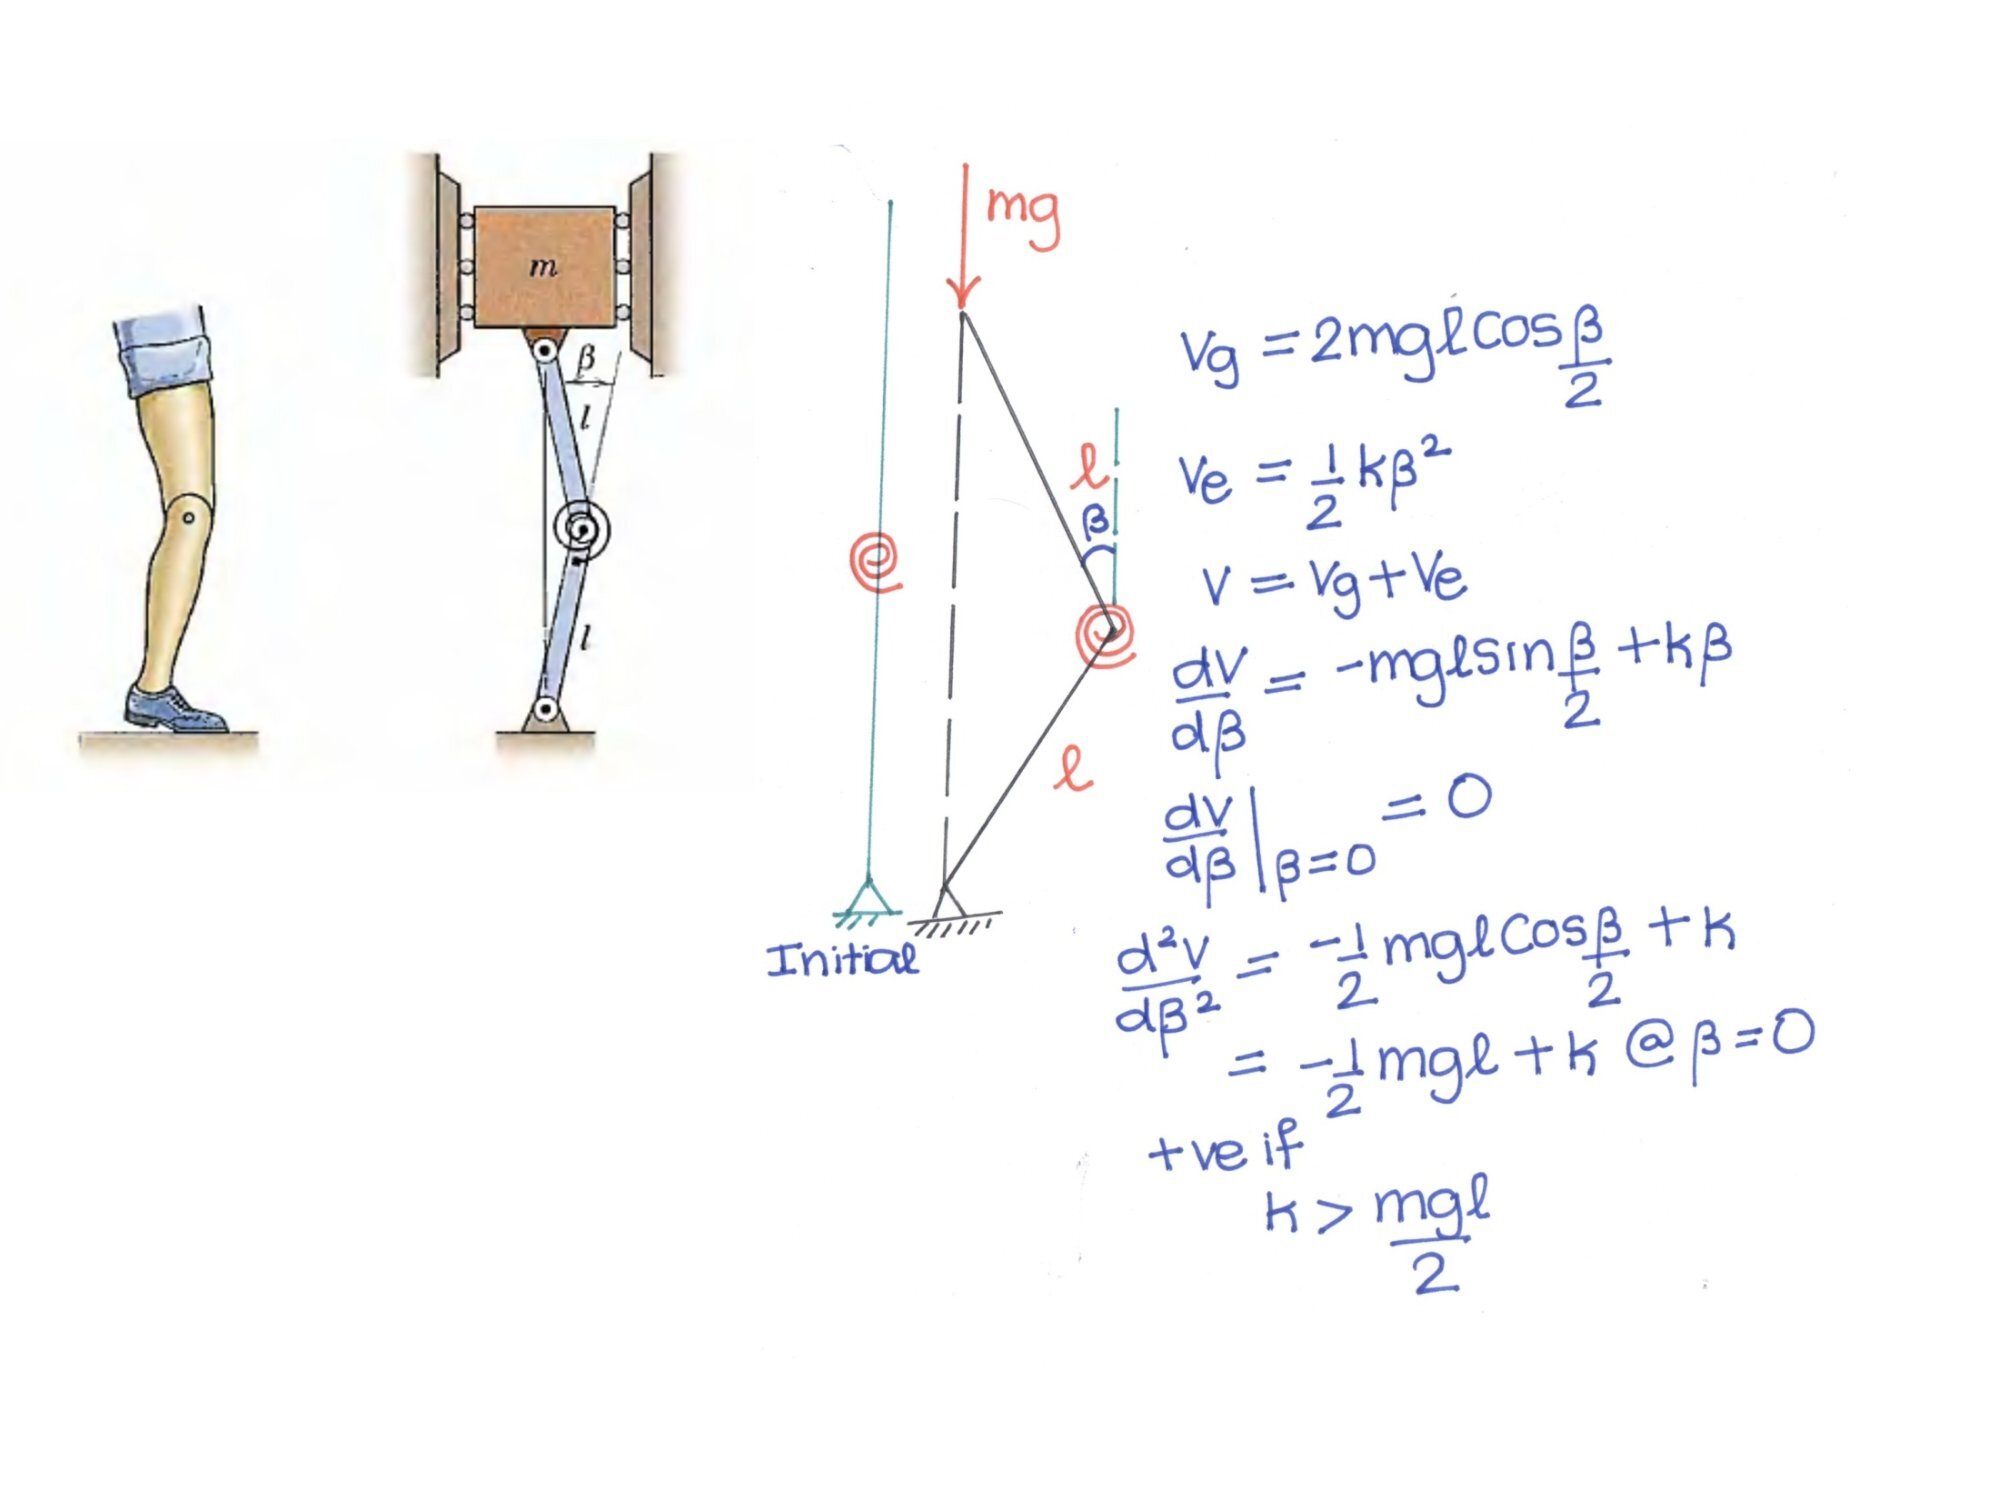 m
β
l
l
mg
l
β
l
Initial
Vg = 2mgl cos β/2
Ve = 1/2 kβ²
V = Vg + Ve
dV/dβ = -mgl sin β/2 + kβ
dV/dβ |β=0 = 0
d²V/dβ² = -1/2 mgl Cos β/2 + k
= -1/2 mgl + k @ β=0
+ve if
k > mgl/2